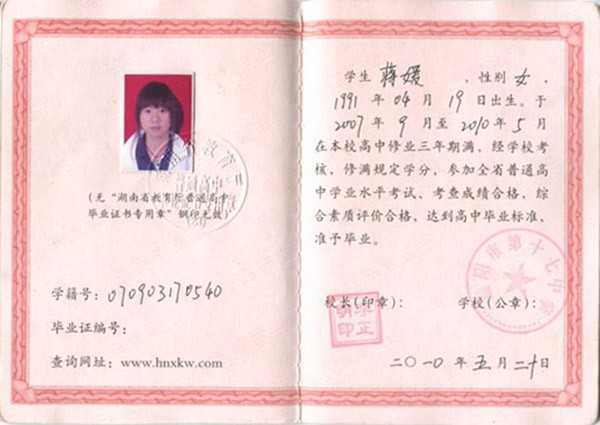 (无“湖南省教育厅普通高中
毕业证书专用章”钢印无效)
学籍号:070903170540
毕业证编号:
查询网址:www.hnxkw.com
学生 蒋媛 ,性别 女,
1991 年 04 月 19 日出生。于
2007 年 9 月至 2010 年 5 月
在本校高中修业三年期满,经学校考
核,修满规定学分,参加全省普通高
中学业水平考试、考查成绩合格,综
合素质评价合格,达到高中毕业标准,
准予毕业。
校长(印章): 学校(公章):
阳市第十七中学
二〇一〇 年 五 月 二十 日